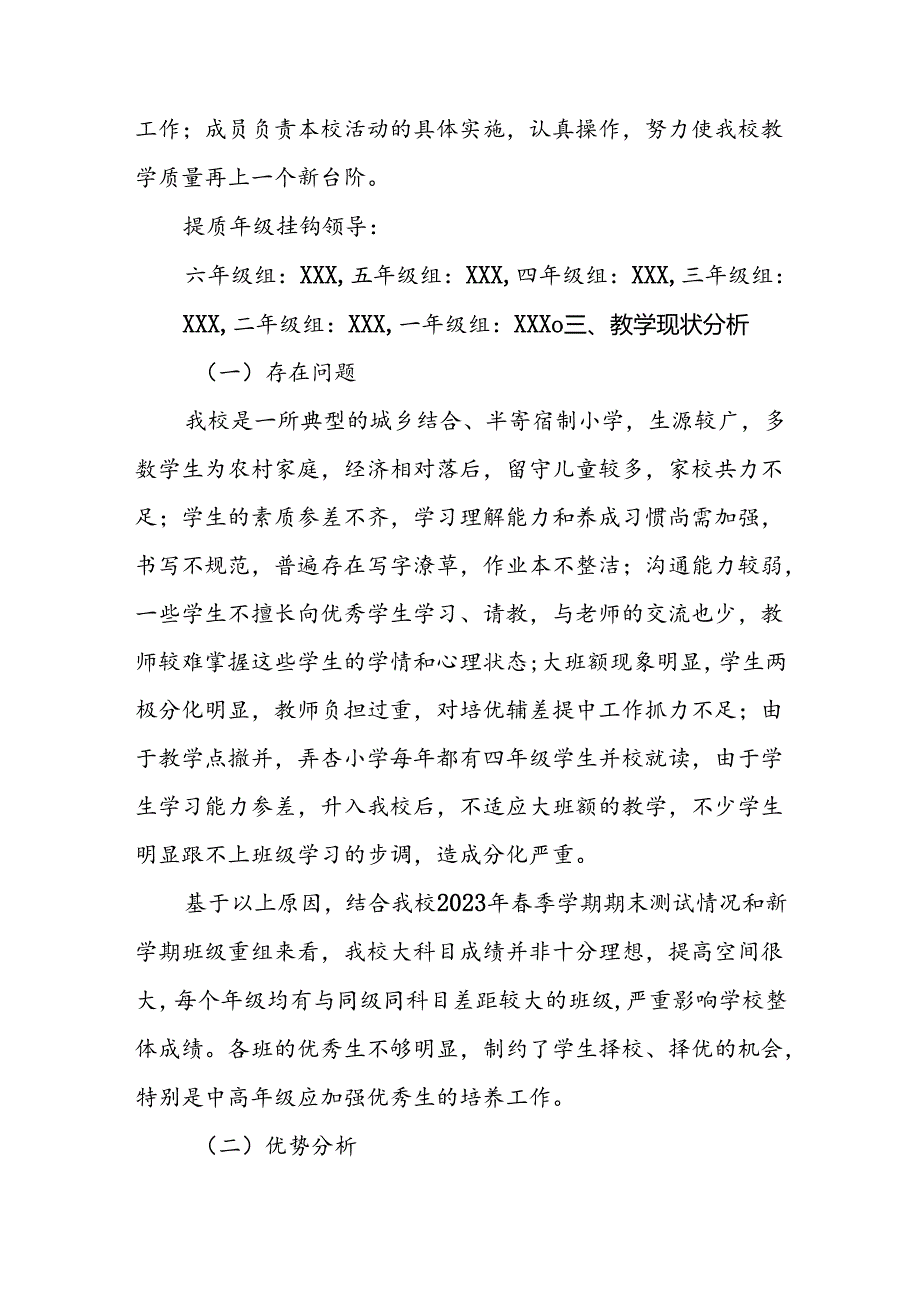 工作；成员负责本校活动的具体实施，认真操作，努力使我校教
学质量再上一个新台阶。
提质年级挂钩领导：
六年级组：XXX,五年级组：XXX,四年级组：XXX,三年级组：
XXX,二年级组：XXX,一年级组：XXXo三、教学现状分析
（一）存在问题
我校是一所典型的城乡结合、半寄宿制小学，生源较广，多
数学生为农村家庭，经济相对落后，留守儿童较多，家校共力不
足；学生的素质参差不齐，学习理解能力和养成习惯尚需加强，
书写不规范，普遍存在写字潦草，作业本不整洁；沟通能力较弱，
一些学生不擅长向优秀学生学习、请教，与老师的交流也少，教
师较难掌握这些学生的学情和心理状态;大班额现象明显,学生两
极分化明显，教师负担过重，对培优辅差提中工作抓力不足；由
于教学点撤并，弄杏小学每年都有四年级学生并校就读，由于学
生学习能力参差，升入我校后，不适应大班额的教学，不少学生
明显跟不上班级学习的步调，造成分化严重。
基于以上原因，结合我校2023年春季学期期末测试情况和新
学期班级重组来看，我校大科目成绩并非十分理想，提高空间很
大,每个年级均有与同级同科目差距较大的班级,严重影响学校整
体成绩。各班的优秀生不够明显，制约了学生择校、择优的机会，
特别是中高年级应加强优秀生的培养工作。
（二）优势分析